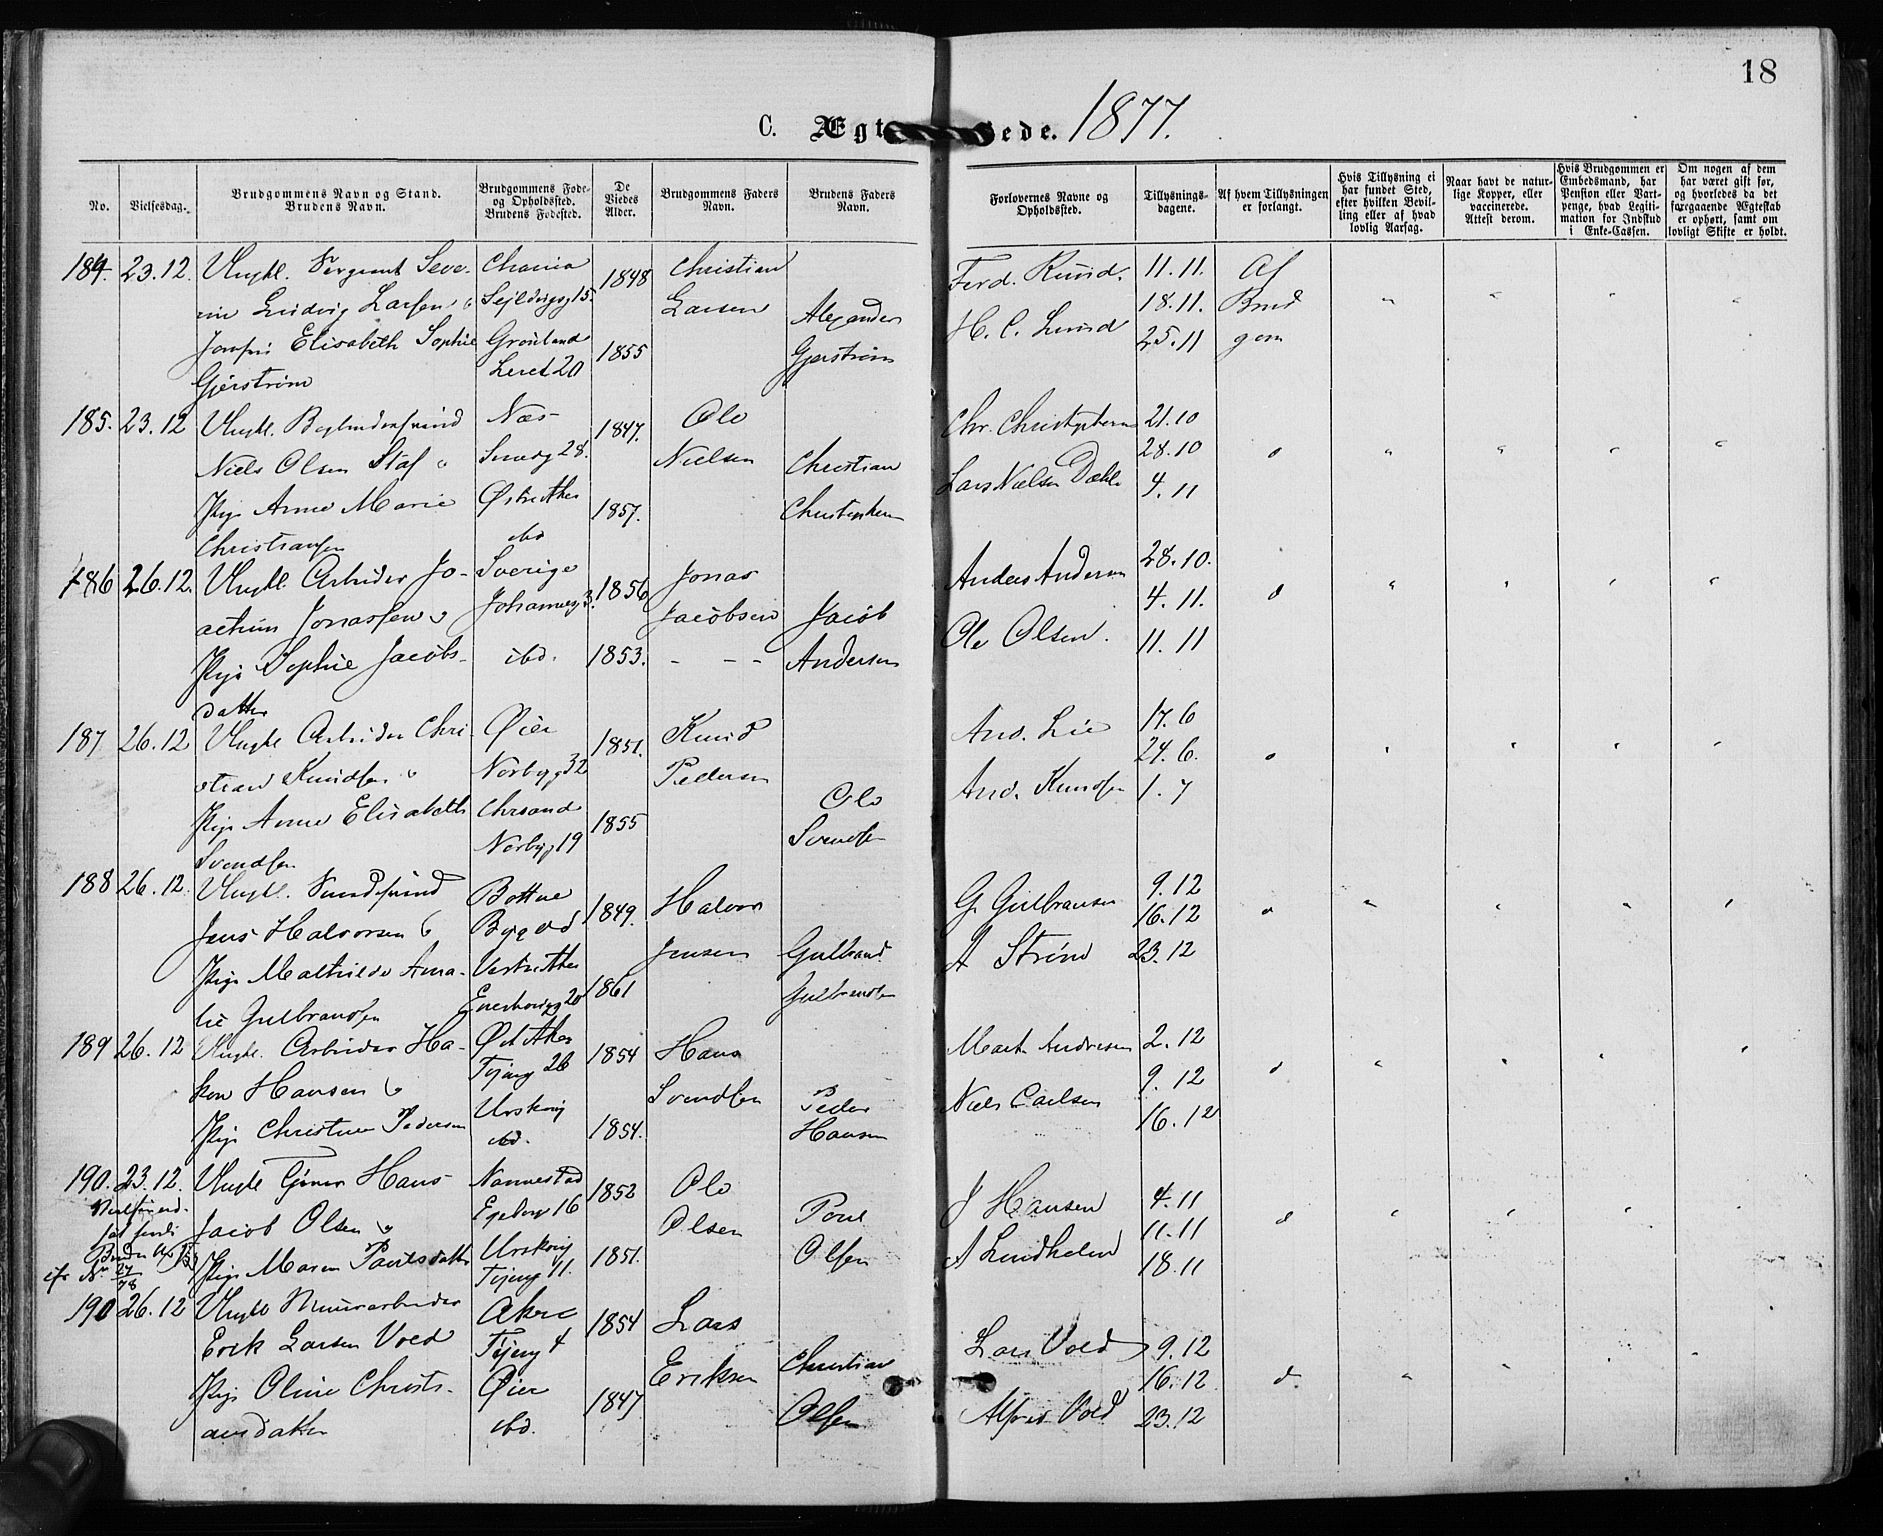 18
C. Ægt sede. 1877.
No.
Vielsesdag.
Brudgommens Navn og Stand.
Brudens Navn.
Brudgommens Føde-
og Opholdssted.
Brudens Fødested.
De
Viedes
Alder.
Brudgommens Faders
Navn.
Brudens Faders
Navn.
Forlovernes Navne og
Opholdssted.
Tillysnings-
dagene.
Af hvem Tillysningen
er forlangt.
Hvis Tillysning ei
har fundet Sted,
efter hvilken Bevil-
ling eller af hvad
lovlig Aarsag.
Naar havt de natur-
lige Kopper, eller
vaccinerede.
Attest derom.
Hvis Brudgommen er
Embedsmand, har
Pension eller Vart-
penge, hvad Legiti-
mation for Indskud
i Enke-Cassen.
Om nogen af dem
har været gift før,
og hvorledes da det
foregaaende Ægteskab
er ophørt, samt om
lovligt Skifte er holdt.
184. 23.12. Ungkl. Sergeant Seve- Chania 1848 Christian Ferd. Rund. 11.11. Af
rin Ludvig Larsen Sejldugsg 15. Larsen 18.11. Brud
Jomfru Elisabeth Sophie Grønland 1855 Alexander H. C. Lund 25.11 gom
Gjerstrøm Leret 20 Gjerstrøm
185. 23.12 Ungkl. Næs 1847. Ole Chr. Christophersen 21.10
Niels Olsen Staf 28. Nielsen Christian 28.10
Pige Anne Marie Østre Aker 1857. Christophersen Lars Nielsen Dæhle 4.11
Christiansen ibd
186 26.12. Ungkl. Arbeider Jo- Sverige 1856 Jonas Anders Andersen 28.10.
achim Jonassen Johannesg 3. Jacobsen Jacob 4.11.
Pige Sophie Jacobs- ibd. 1853. - - - Andersen Ole Olsen. 11.11
datter
187 26.12 Ungkl Arbeider Chri- Øier 1851. Knud And. Lie 17.6
stian Knudsen Norbyg 32 Pedersen 24.6.
Pige Anne Elisabeth Chrsand 1855 Ole And. Knudsen 1.7
Svendsen Norbyg 19 Svendsen
188 26.12. Ungkl. Bottne 1849. Halvor G. Gulbransen 9.12
Jens Halvorsen Bygg 16.12
Pige Mathilde Ama- Vestre Aker 1861 Jensen Gulbrand A Strøm 23.12
lie Gulbrandsen 20 Gulbrandsen
189 26.12 Ungkl. Arbeider Ha- Øst Aker 1854 Hans Mart. Andresen 2.12
kon Hansen Tøieng 26 Svendsen Peder 9.12
Pige Christine Pedersen Urskoug ibd. 1854. Hansen Niels Carlsen 16.12
190. 23.12. Ungkl Tjener Hans Nannestad 1852 Ole J Hansen 4.11
Jacob Olsen Egebergg 16 Olsen Poul 11.11
Pige Maren Paulsdatter Urskoug Tøieng 11. 1851. Olsen A Lindholm 18.11
27
78
190 26.12 Ungkl Muurarbeider Aker 1854 Lars Lars Vold 9.12
Erik Larsen Vold Tøieng 4 Eriksen Christian 16.12
Pige Oline Christi- Øier 1847 Olsen Alfred Vold 23.12
ansdatter ibd.